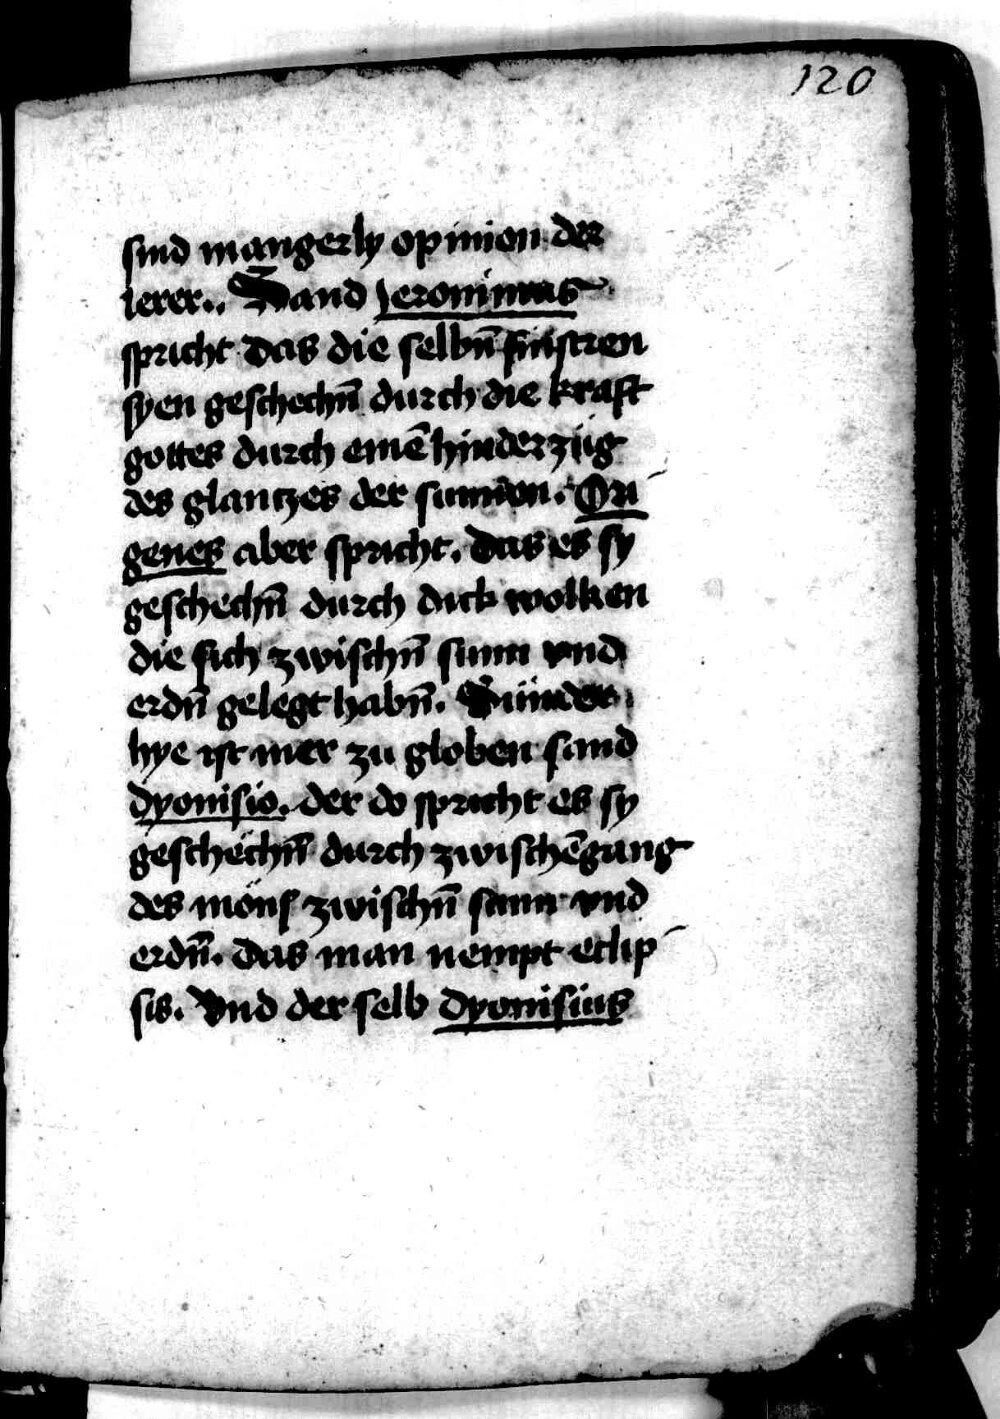 120
sind mangerly opinion der
lerer.. Sand Jeronimus
spricht das die selbn̄ finstren
syen geschechn̄ durch die kraft
gottes durch einē hinderzüg
des glantzes der sunnen. Ori
genes aber spricht. das es sy
geschechn̄ durch dick wolken
die sich zwischn̄ sunn vnd
erdn̄ gelegt habn̄. Sünder
hye ist mer zu globen sand
dyonisio. der do spricht es sy
geschechn̄ durch zwischēgang
des mons zwischn̄ sunn vnd
erdn̄. das man nempt eclip
sis. Vnd der selb Dyonisius